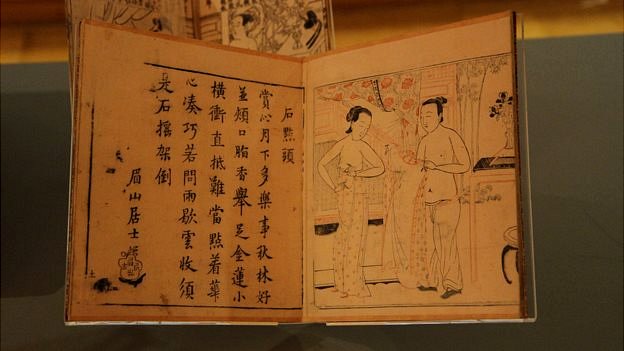 石點頭
賞心月下多樂事秋林好
並頰口脂香舉足金蓮小
橫衝直抵難當點着華
心湊巧若問雨歇雲收須
是石搖架倒
眉山居士